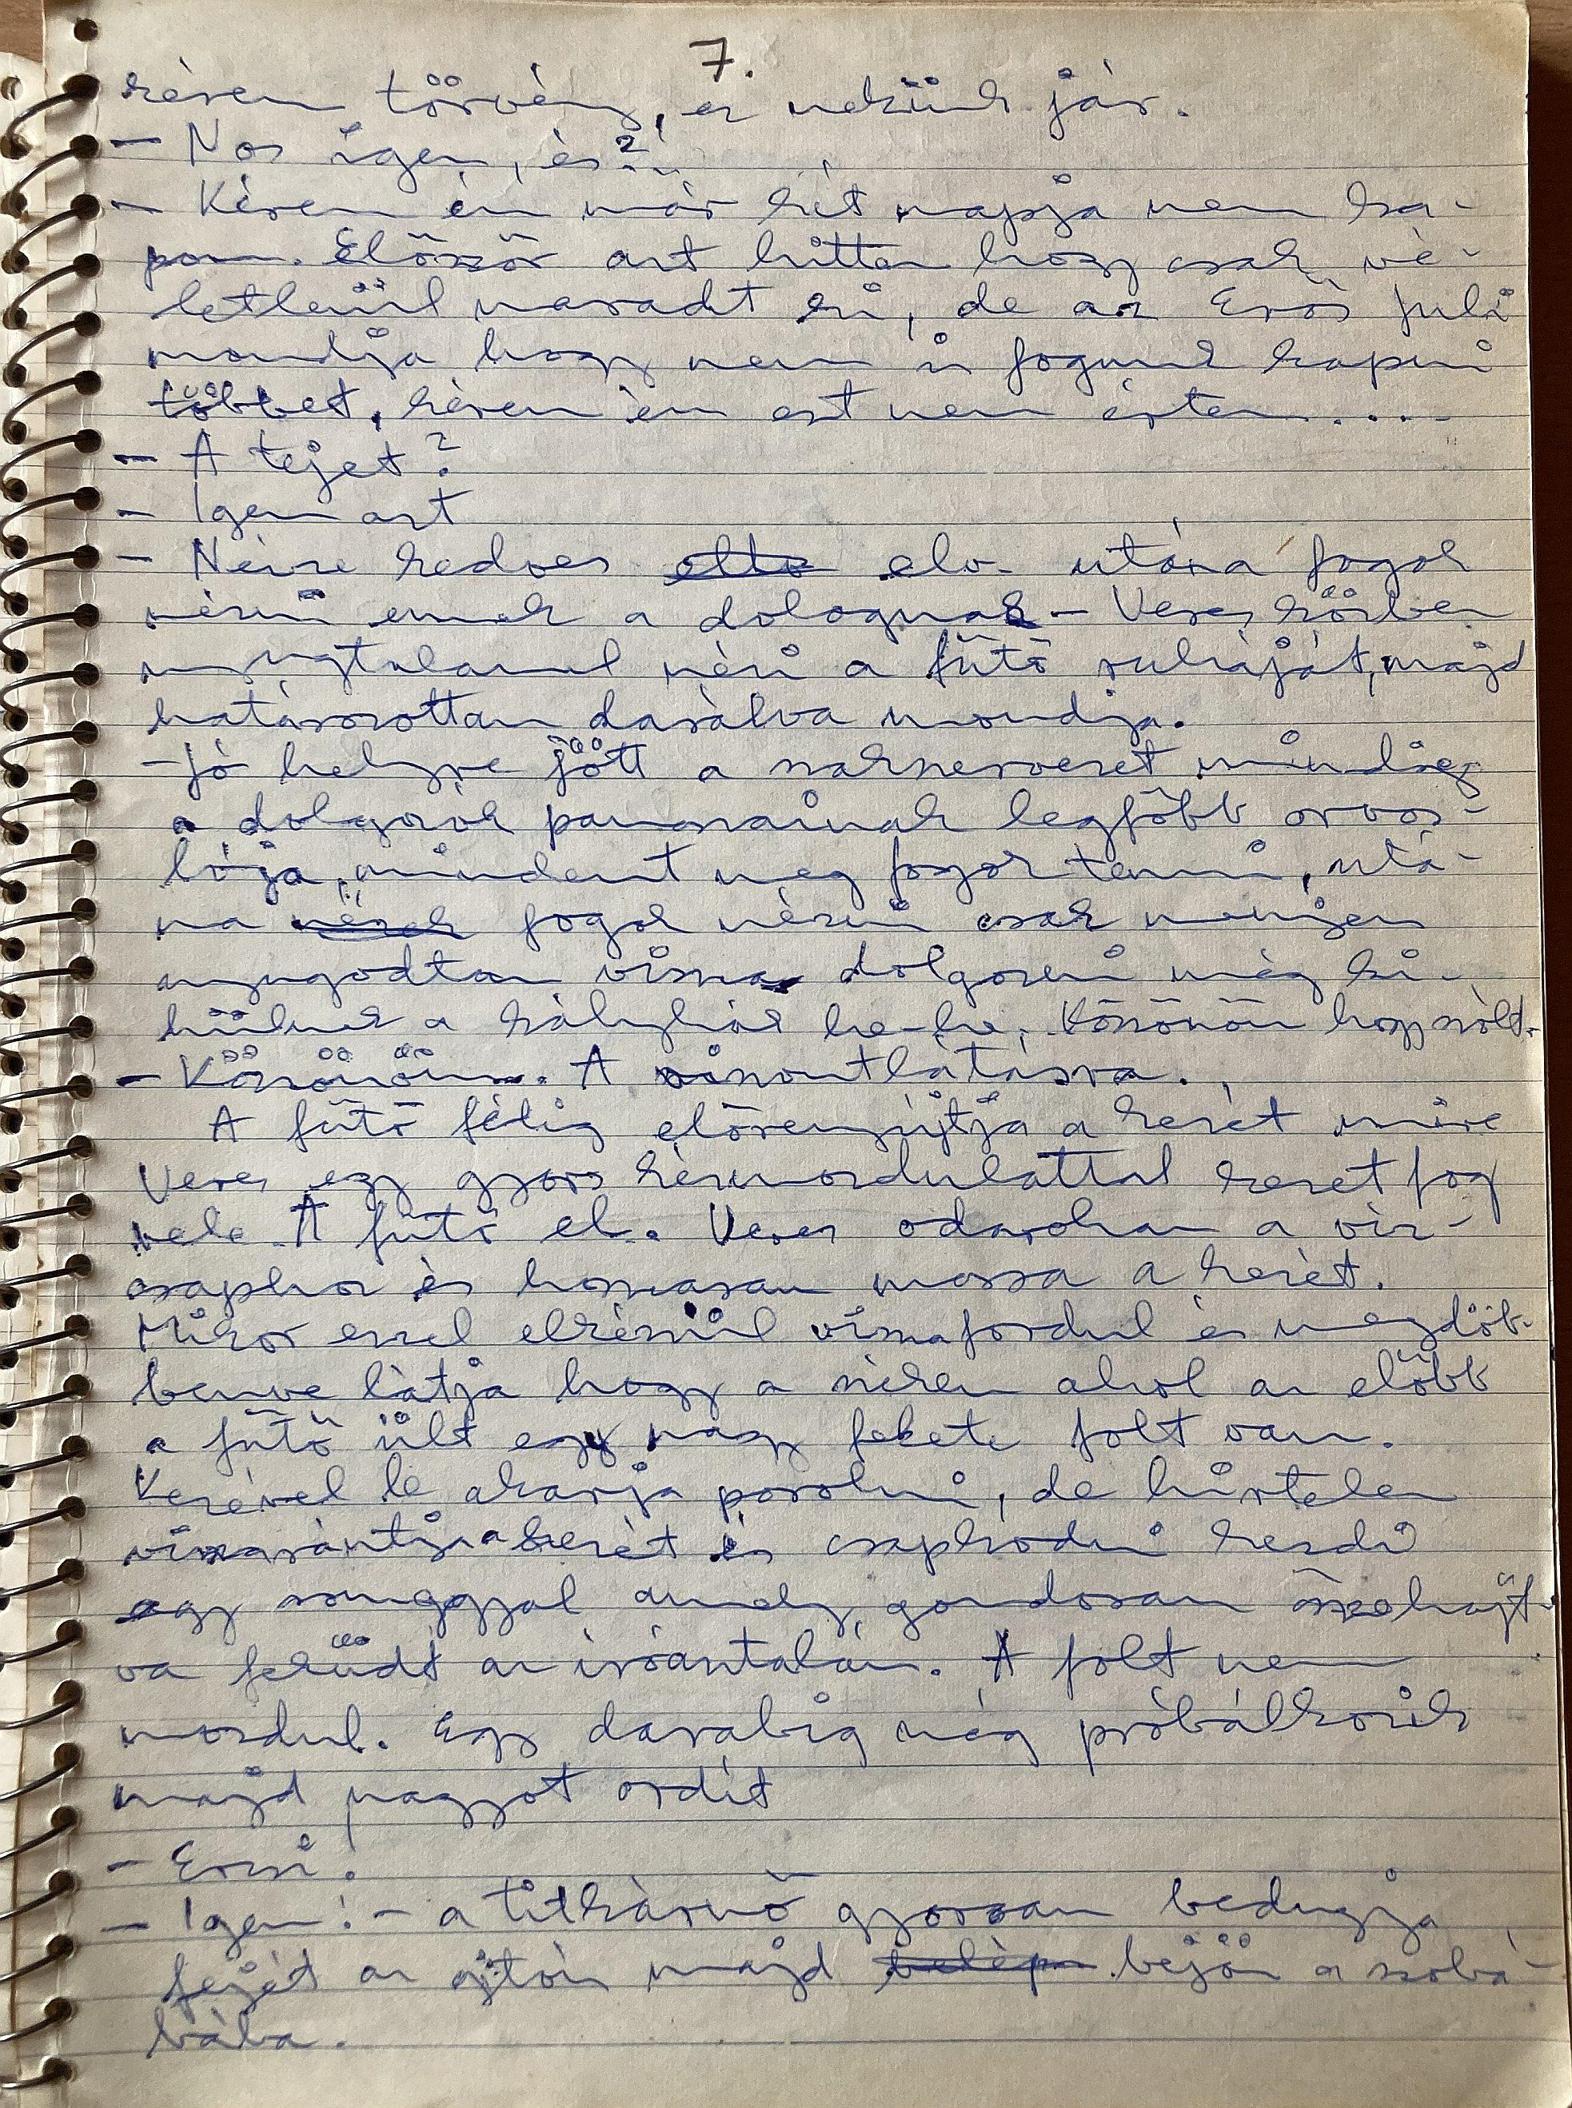 7.
kérem törvény, ez nekünk jár.
- Nos igen, és?
- Kérem én már két napja nem ka-
pom. Először azt hittem hogy csak vé-
letlenül maradt ki, de az Erős Juli
mondja hogy nem is fogunk kapni
többet, kérem én ezt nem értem....
- A tejet?
- Igen azt
- Nézze kedves elv. utána fogok
nézni ennek a dolognak - Veres közben
nyugtalanul nézi a fűtő ruháját, majd
határozottan darálva mondja.
- Jó helyre jött a szakszervezet mindég
a dolgozók panaszainak legfőbb orvos-
lója, mindent meg fogok tenni, utá-
na nézek fogok nézni csak menjen
nyugodtan vissza dolgozni még ki-
hülnek a kályhák he-he, Köszönöm hogy szólt.
- Köszönöm. A viszontlátásra.
A fűtő félig előrenyújtja a kezét mire
Veres egy gyors kézmozdulattal kezet fog
vele. A fűtő el. Veres odarohan a víz-
csaphoz és hosszasan mossa a kezét.
Mikor ezzel elkészül visszafordul és megdöb-
benve látja hogy a széken ahol az előbb
a fűtő ült egy nagy fekete folt van.
Kezével le akarja porolni, de hirtelen
visszarántja a kezét és csapkodni kezdi
egy ronggyal amely gondosan összehajt-
va feküdt az íróasztalán. A folt nem
mozdul. Egy darabig még próbálkozik
majd nagyot ordít
- Erzsi!
- Igen! - a titkárnő gyorsan bedugja
fejét az ajtón majd belép bejön a szobá-
bába.